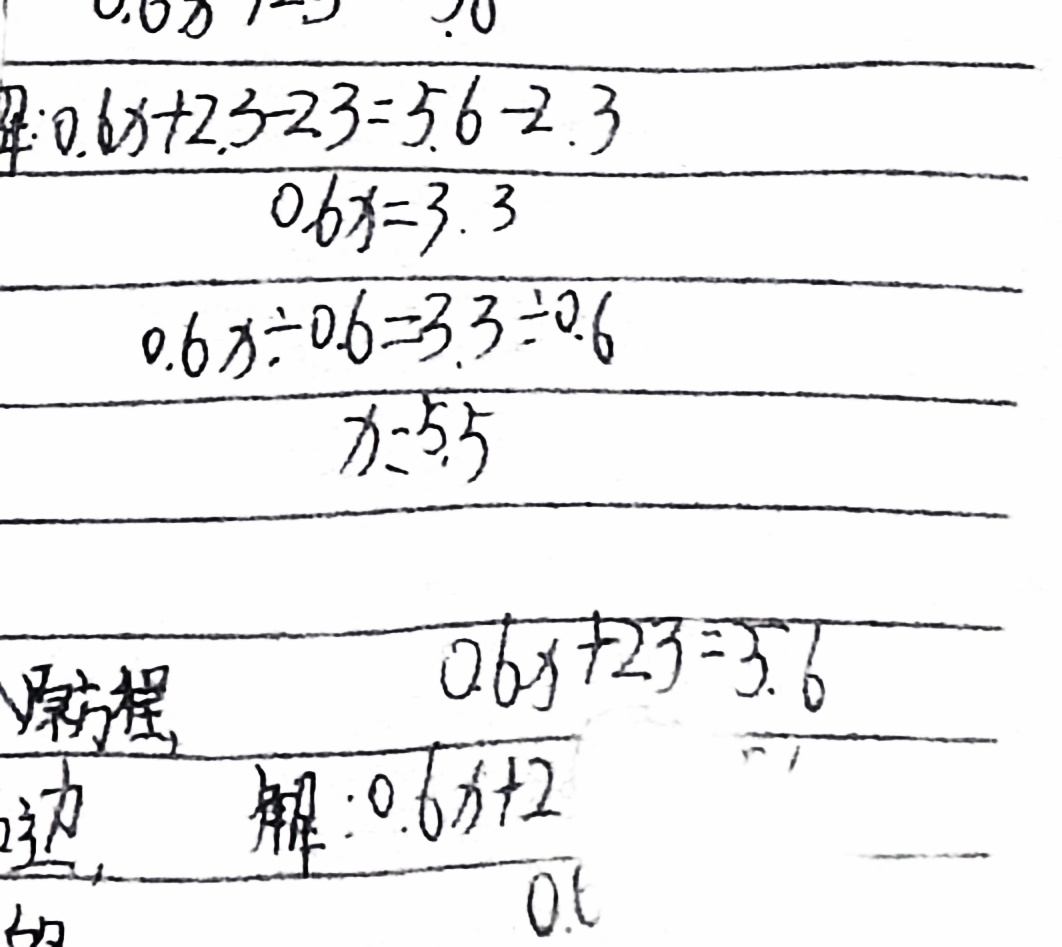 解:0.6x+2.3-2.3=5.6-2.3
0.6x=3.3
0.6x÷0.6=3.3÷0.6
x=5.5
0.6x+2.3=5.6
原方程,
边,
解:0.6x+2
0.6
的